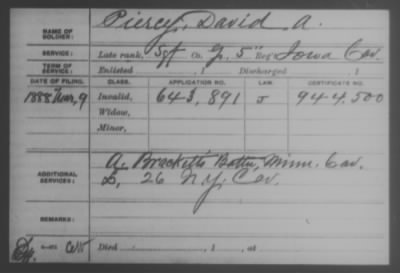 NAME OF SOLDIER: Piercy, David A.
SERVICE: Late rank, Sgt Co. G, 5" Reg't Iowa Cav.
TERM OF SERVICE: Enlisted , 1 Discharged , 1
DATE OF FILING. CLASS. APPLICATION NO. LAW. CERTIFICATE NO.
1888 Mar, 9 Invalid, 643,891 J 944,500
Widow,
Minor,
ADDITIONAL SERVICES: A. Brackett's Batt'n, Minn. Cav.
D, 26 N.Y. Cav.
REMARKS:
Died , 1 , at